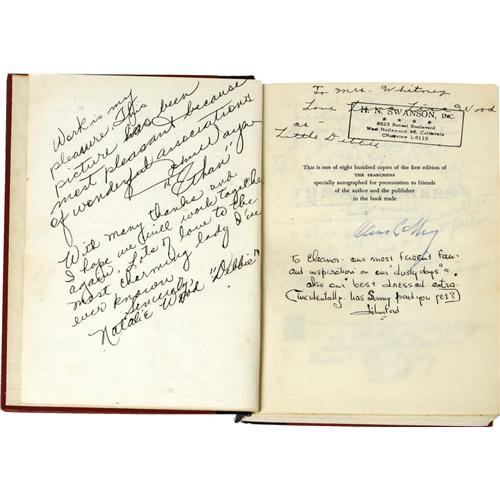 Work is my
pleasure This
picture has been
most pleasant because
of wonderful associations
John Wayne
"Ethan"
With many thanks and
I hope we will work together
again. Lots of love to the
most charming lady I've
ever known
Sincerely,
Natalie Wood "Debbie"
To Mrs. Whitney
Love Lana Wood
as
Little Debbie
H. N. SWANSON, INC.
8523 Sunset Boulevard
West Hollywood 46, California
CRestview 1-5115
This is one of eight hundred copies of the first edition of
THE SEARCHERS
specially autographed for presentation to friends
of the author and the publisher
in the book trade
To Eleanor - our most fervent fan -
and inspiration on our dusty days" -
also our best dressed extra.
(incidentally has Sonny paid you yet?)
John Ford